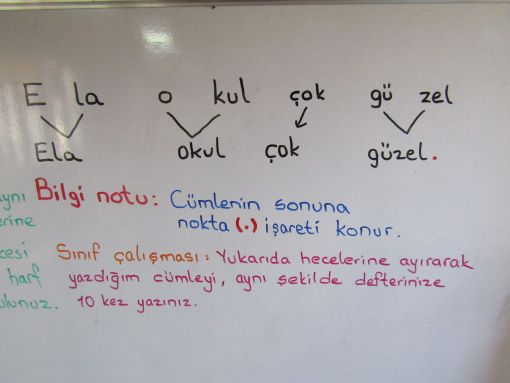 E la o kul çok gü zel
Ela okul çok güzel.
Bilgi notu: Cümlenin sonuna
nokta (.) işareti konur.
Sınıf çalışması: Yukarıda hecelerine ayırarak
harf yazdığım cümleyi, aynı şekilde defterinize
10 kez yazınız.